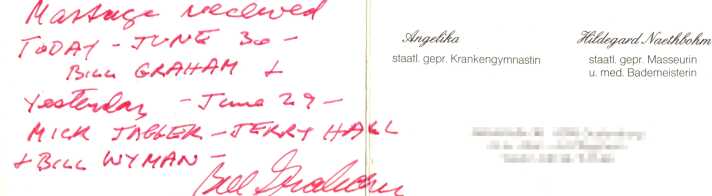 Massage received
TODAY - JUNE 30 -
BILL GRAHAM +
Yesterday - June 29 -
MICK JAGGER - JERRY HALL
+ BILL WYMAN -
Bill Graham
Angelika
staatl. gepr. Krankengymnastin
Hildegard Naethbohm
staatl. gepr. Masseurin
u. med. Bademeisterin